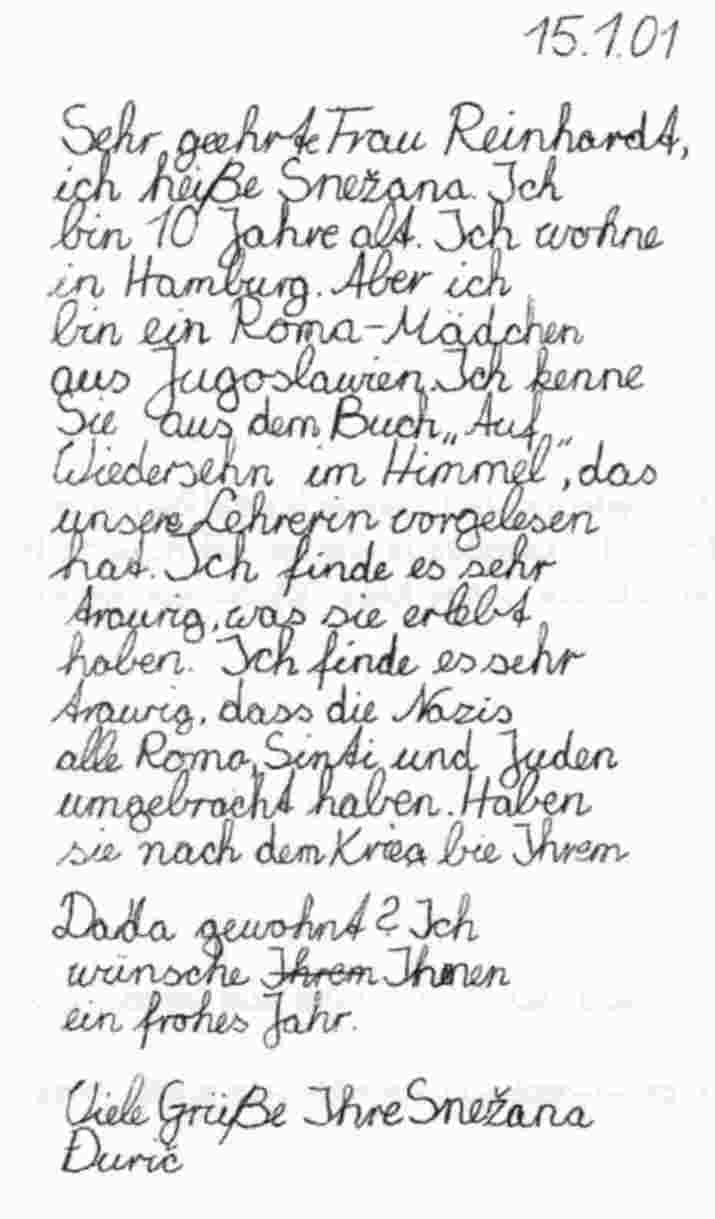 15.1.01
Sehr geehrte Frau Reinhardt,
ich heiße Snežana. Ich
bin 10 Jahre alt. Ich wohne
in Hamburg. Aber ich
bin ein Roma-Mädchen
aus Jugoslawien. Ich kenne
Sie aus dem Buch „Auf
Wiedersehn im Himmel“, das
unsere Lehrerin vorgelesen
hat. Ich finde es sehr
traurig, was sie erlebt
haben. Ich finde es sehr
traurig, dass die Nazis
alle Roma, Sinti und Juden
umgebracht haben. Haben
sie nach dem Krieg bie Ihrem
Dada gewohnt? Ich
wünsche Ihrem Ihnen
ein frohes Jahr.
Viele Grüße Ihre Snežana
Đurič